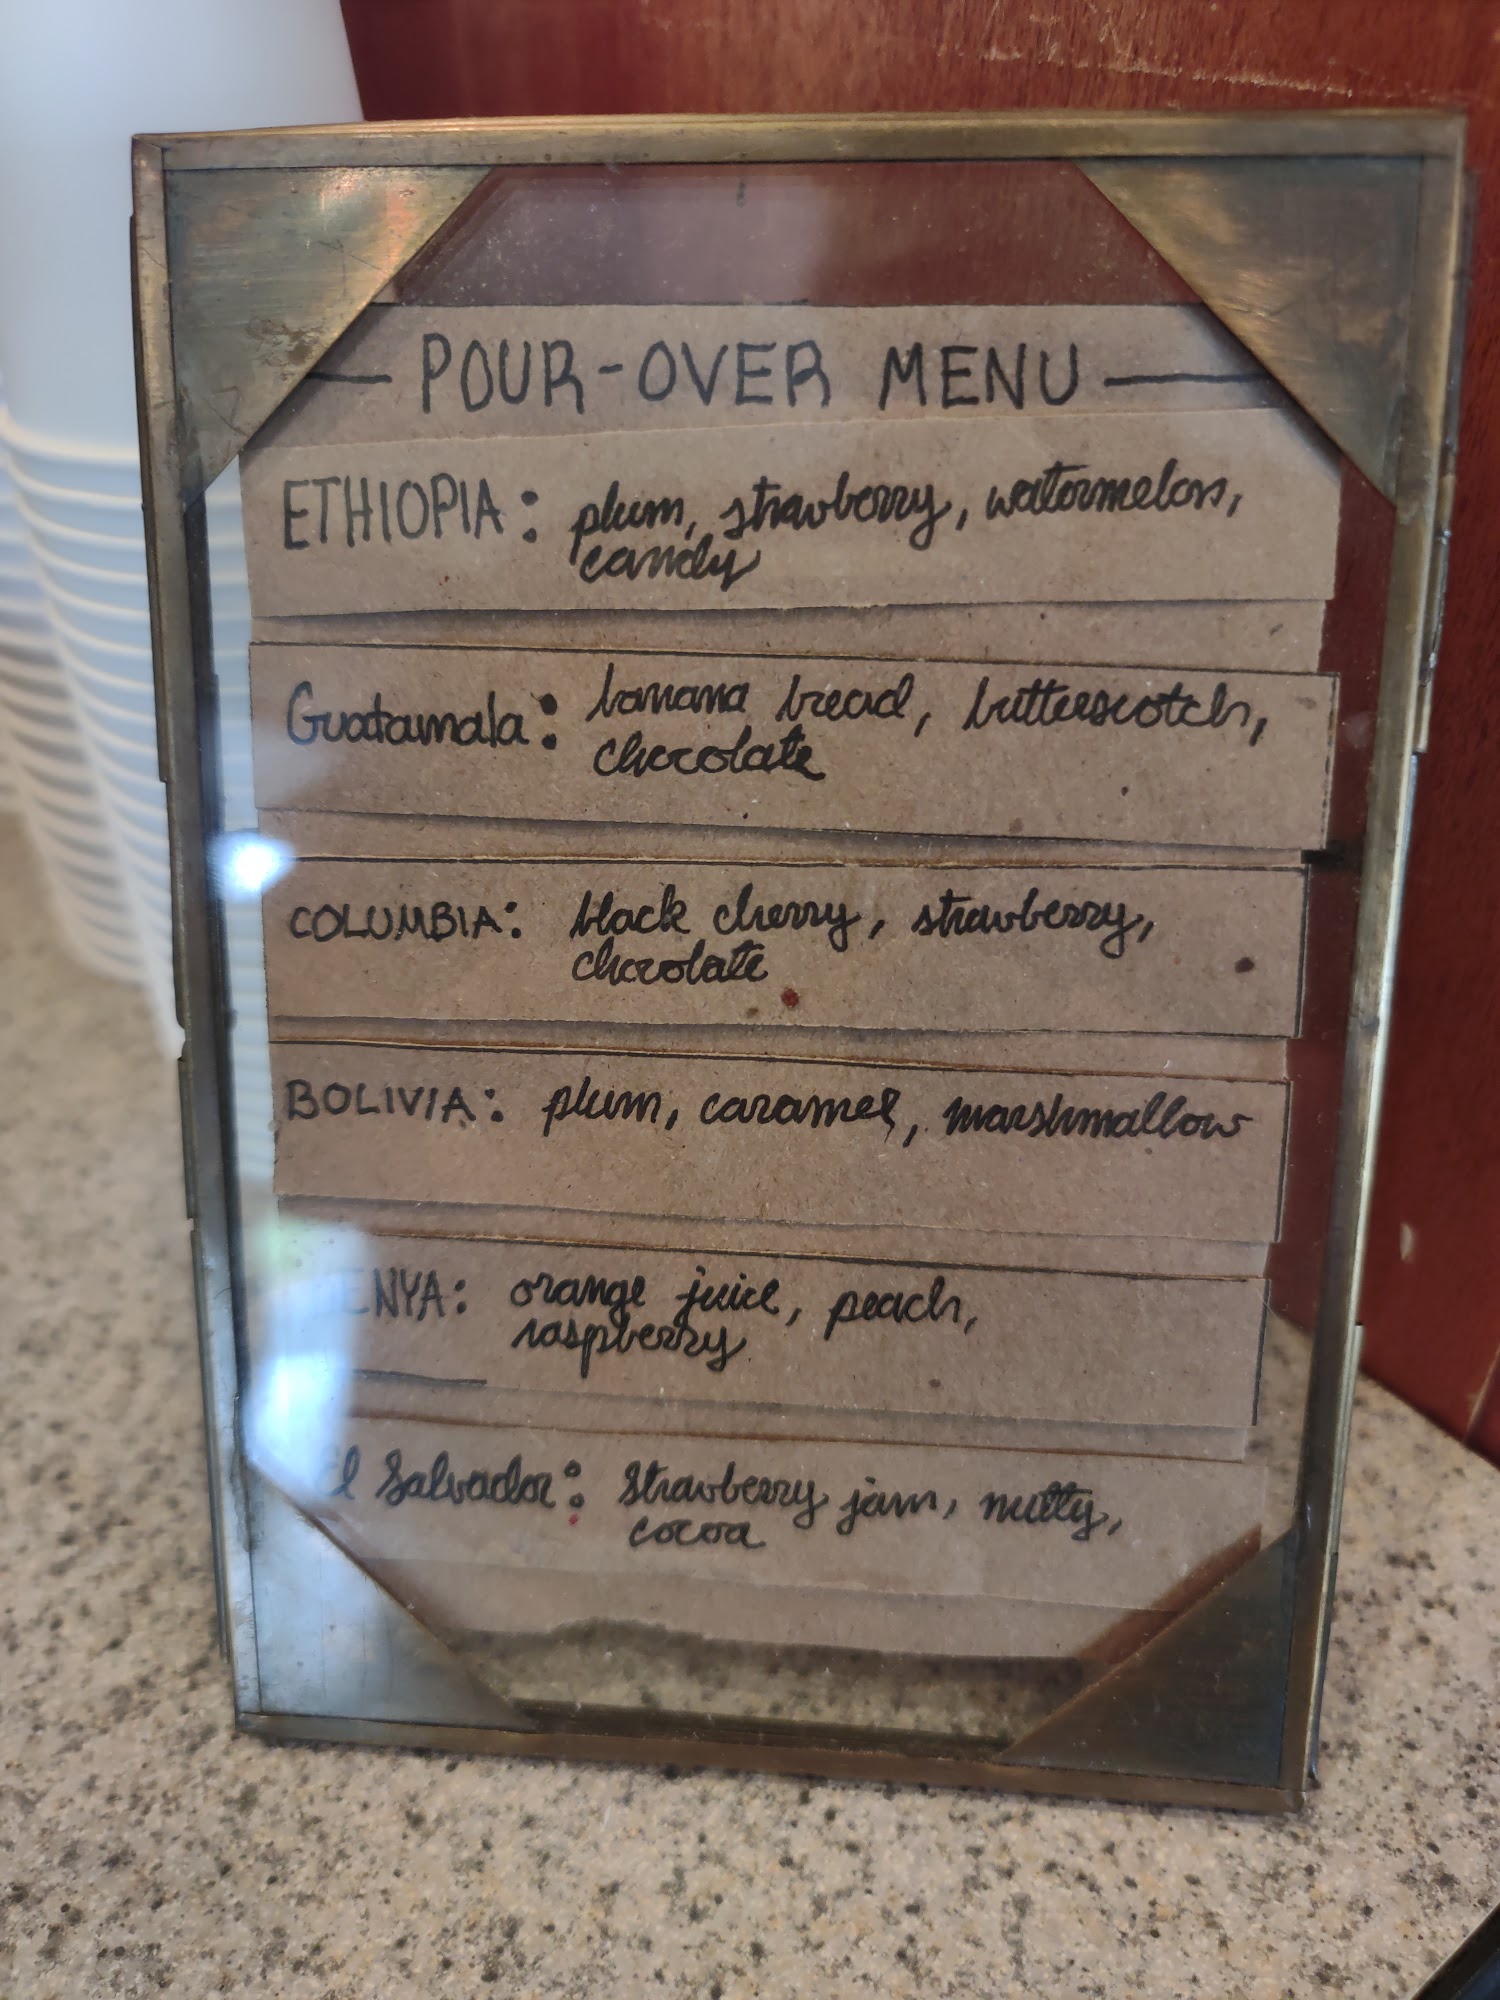 POUR-OVER MENU
ETHIOPIA: plum, strawberry, watermelon,
candy
Guatamala: banana bread, butterscotch,
chocolate
COLUMBIA: black cherry, strawberry,
chocolate
BOLIVIA: plum, caramel, marshmallow
KENYA: orange juice, peach,
raspberry
El Salvador: Strawberry jam, nutty,
cocoa